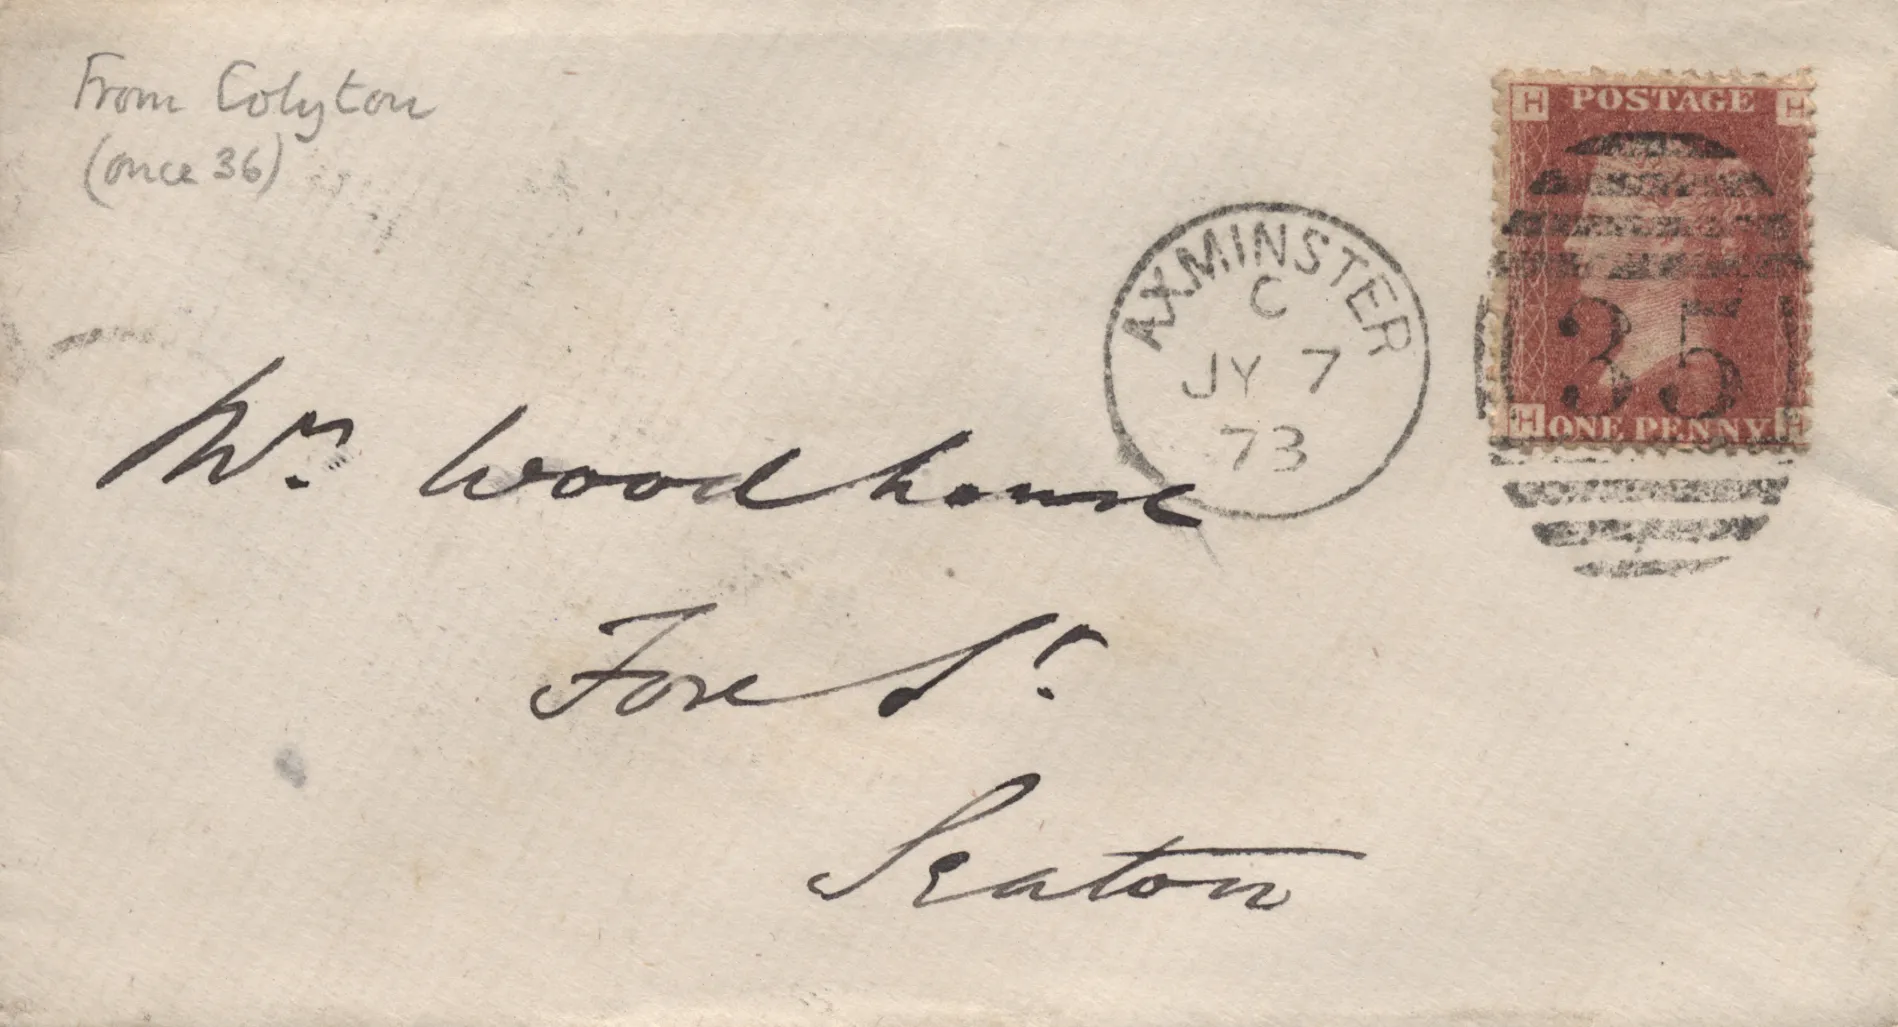 From Colyton
(once 36)
H POSTAGE H
AXMINSTER
C
JY 7
73
35
H ONE PENNY H
Mrs. Woodhouse
Fore St.
Seaton